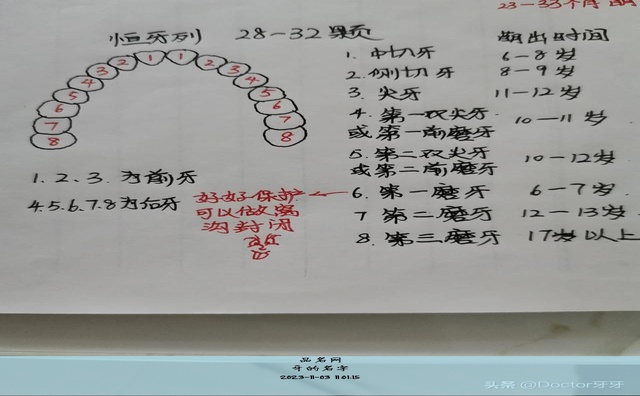 23-33个月
恒牙列 28-32颗
萌出时间
2 1 1 2
3 3
4 4
5 5
6 6
7 7
8 8
1. 中切牙 6-8岁
2. 侧切牙 8-9岁
3. 尖牙 11-12岁
4. 第一双尖牙
或第一前磨牙 10-11岁
5. 第二双尖牙
或第二前磨牙 10-12岁
6. 第一磨牙 6-7岁
7 第二磨牙 12-13岁
8. 第三磨牙 17岁以上
1. 2、3. 为前牙
4.5.6.7.8为后牙
好好保护
可以做窝
沟封闭
品名网
牙的名字
2023-11-03 11:01:15
头条 @Doctor牙牙